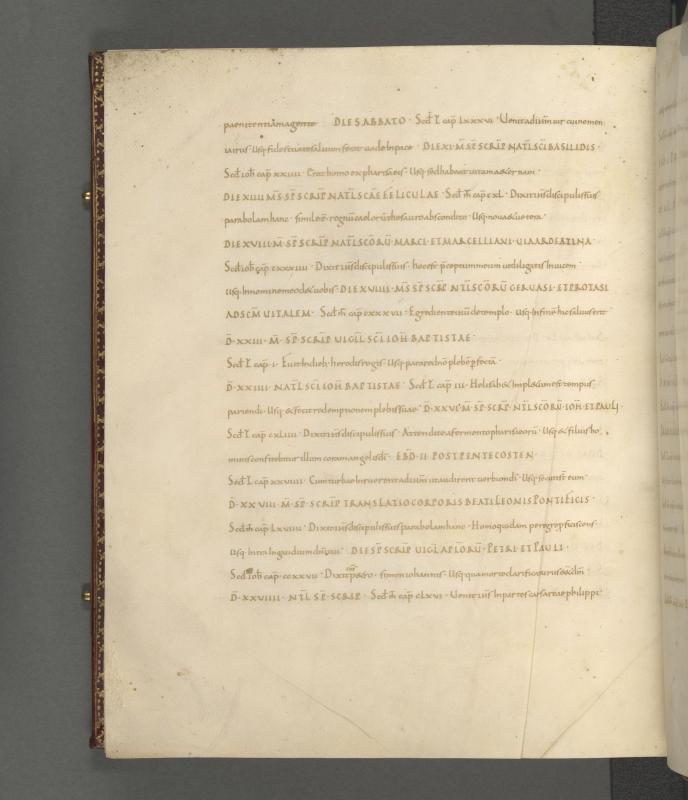 paenitentiam agente DIE SABBATO · Sec̄d L̄ cap̄ LXXXVI · Venit ad ih̄m uir cui nomen
iairus · Usq; fides tua te saluam fecit uade in pace · DIE XI · M̄ S̄P̄ SCRIP̄ NAT̄L SC̄I BASILIDIS ·
Sec̄d ioh̄ cap̄ XXIIII · Erat homo ex pharisaeis · Usq; sed habeat uitam aeternam ·
DIE XIIII M̄S · S̄P̄ SCRIP̄ NAT̄L SC̄AE FELICULAE · Sec̄d m̄ cap̄ CXL · Dixit ih̄s discipulis suis
parabolam hanc · simile ē regnū caelorū thesauro abscondito · Usq; noua & uetera ·
DIE XVIII · M̄ · S̄P̄ SCRIP̄ NAT̄L SC̄ORŪ MARCI · ET MARCELLIANI · UIA ARDEATINA ·
Sec̄d ioh̄ cap̄ CXXXVIIII · Dixit ih̄s discipulis suis · hoc est p̄ceptum meum ut diligatis inuicem ·
Usq; in nomine meo d& uobis · DIE XVIIII · M̄S S̄P̄ SCRIP̄ NT̄L SC̄ORŪ GERUASI · ET PROTASI
AD SC̄M UITALEM · Sec̄d m̄ cap̄ CCXXXVII · Egrediente ih̄ū de templo · Usq; in finē hic saluus erit
D̄ · XXIII · M̄ · S̄P̄ · SCRIP̄ UIGIL̄ SC̄I IOH̄ BAPTISTAE ·
Sec̄d L̄ cap̄ · I · Fuit in dieb; herodis regis · Usq; parare dn̄o plebē p̄fectā ·
D̄ · XXIIII · NAT̄L SC̄I IOH̄ BAPTISTAE · Sec̄d L̄ cap̄ III · Helisab& impletum est tempus
pariendi · Usq; & fecit redemptionem plebis suae · D̄ · XXVI · M̄ S̄P̄ · SCRIP̄ · NT̄L SC̄ORŪ · IOH̄ · ET PAULI ·
Sec̄d L̄ cap̄ CXLIIII · Dixit ih̄s discipulis suis · Attendite a fermento pharisaeorū · Usq; & filius ho
minis confitebitur illum coram angelis dī · EBD̄ · II · POST PENTECOSTEN ·
Sec̄d L̄ cap̄ XXVIIII · Cum turbae inruerent ad ih̄m ut audirent uerbum dī · Usq; secuti s̄t eum
D̄ · XXVIII · M̄ · S̄P̄ · SCRIP̄ TRANSLATIO CORPORIS BEATI LEONIS PONTIFICIS ·
Sec̄d m̄ cap̄ LXVIIII · Dixit ih̄s discipulis suis parabolam hanc · Homo quidam peregre p̄ficiscens ·
Usq; intra in gaudium dn̄i tui · DIE S̄P̄ SCRIP̄ UIGL̄ AP̄LORŪ · PETRI · ET PAULI ·
Sec̄d ioh̄ cap̄ CCXXVII · Dixit p&ro · simon iohannis · Usq; qua morte clarificaturus ess& dm̄ ·
D̄ · XXVIIII · NT̄L S̄P̄ · SCRIP̄ · Sec̄d m̄ cap̄ CLXVI · Venit ih̄s in partes caesareae philippi ·